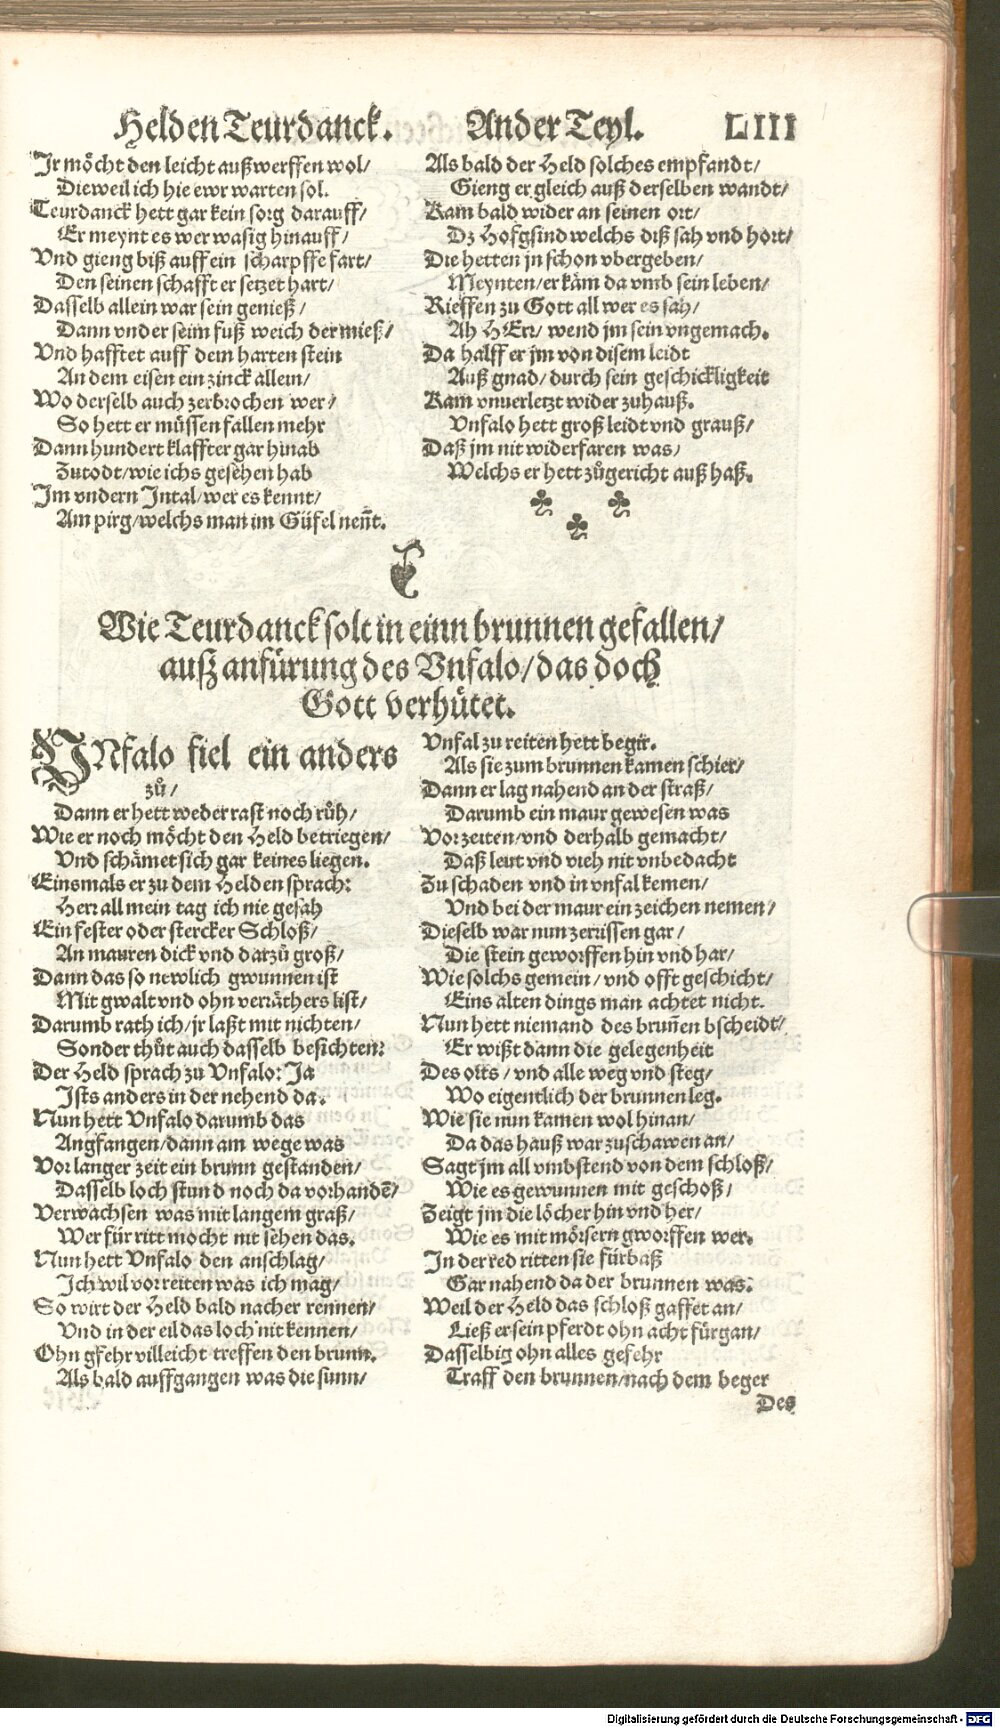 Helden Teurdanck. Ander Teyl. LIII
Ir möcht den leicht außwerffen wol/
Dieweil ich hie ewr warten sol.
Teurdanck hett gar kein sorg darauff/
Er meynt es wer wasig hinauff/
Vnd gieng biß auff ein scharpffe fart/
Den seinen schafft er setzet hart/
Dasselb allein war sein genieß/
Dann vnder seim fuß weich der mieß/
Vnd hafftet auff dem harten stein
An dem eisen ein zinck allein/
Wo derselb auch zerbrochen wer/
So hett er müssen fallen mehr
Dann hundert klaffter gar hinab
Zutodt/wie ichs gesehen hab
Im vndern Intal/wer es kennt/
Am pirg/welchs man im Güfel neñt.
Als bald der Held solches empfandt/
Gieng er gleich auß derselben wandt/
Kam bald wider an seinen ort/
Dz Hofgsind welchs diß sah vnd hort/
Die hetten jn schon vbergeben/
Meynten/er käm da vmb sein leben/
Rieffen zu Gott all wer es sah/
Ah HErr/ wend jm sein vngemach.
Da halff er jm von disem leidt
Auß gnad/durch sein geschickligkeit
Kam vnuerletzt wider zuhauß.
Vnfalo hett groß leidt vnd grauß/
Daß jm nit widerfaren was/
Welchs er hett zůgericht auß haß.
Wie Teurdanck solt in einn brunnen gefallen/
auß anfürung des Vnfalo/das doch
Gott verhütet.
VNfalo fiel ein anders
zů/
Dann er hett weder rast noch růh/
Wie er noch möcht den Held betriegen/
Vnd schämet sich gar keines liegen.
Einsmals er zu dem Helden sprach:
Herr all mein tag ich nie gesah
Ein fester oder stercker Schloß/
An mauren dick vnd darzů groß/
Dann das so newlich gwunnen ist
Mit gwalt vnd ohn verräthers list/
Darumb rath ich/jr laßt mit nichten/
Sonder thůt auch dasselb besichten:
Der Held sprach zu Vnfalo: Ja
Ists anders in der nehend da.
Nun hett Vnfalo darumb das
Angfangen/dann am wege was
Vor langer zeit ein brunn gestanden/
Dasselb loch stund noch da vorhandē/
Verwachsen was mit langem graß/
Wer für ritt mocht nit sehen das.
Nun hett Vnfalo den anschlag/
Ich wil vorreiten was ich mag/
So wirt der Held bald nacher rennen/
Vnd in der eil das loch nit kennen/
Ohn gfehr villeicht treffen den brunn.
Als bald auffgangen was die sunn/
Vnfal zu reiten hett begir.
Als sie zum brunnen kamen schier/
Dann er lag nahend an der straß/
Darumb ein maur gewesen was
Vorzeiten/vnd derhalb gemacht/
Daß leut vnd vieh nit vnbedacht
Zu schaden vnd in vnfal kemen/
Vnd bei der maur ein zeichen nemen/
Dieselb war nun zerrissen gar/
Die stein geworffen hin vnd har/
Wie solchs gemein/vnd offt geschicht/
Eins alten dings man achtet nicht.
Nun hett niemand des bruñen bscheidt/
Er wißt dann die gelegenheit
Des orts/vnd alle weg vnd steg/
Wo eigentlich der brunnen leg.
Wie sie nun kamen wol hinan/
Da das hauß war zuschawen an/
Sagt jm all vmbstend von dem schloß/
Wie es gewunnen mit geschoß/
Zeigt jm die löcher hin vnd her/
Wie es mit mörsern gworffen wer.
In der red ritten sie fürbaß
Gar nahend da der brunnen was:
Weil der Held das schloß gaffet an/
Ließ er sein pferdt ohn acht fürgan/
Dasselbig ohn alles gefehr
Traff den brunnen/nach dem beger
Des
Digitalisierung gefördert durch die Deutsche Forschungsgemeinschaft - DFG